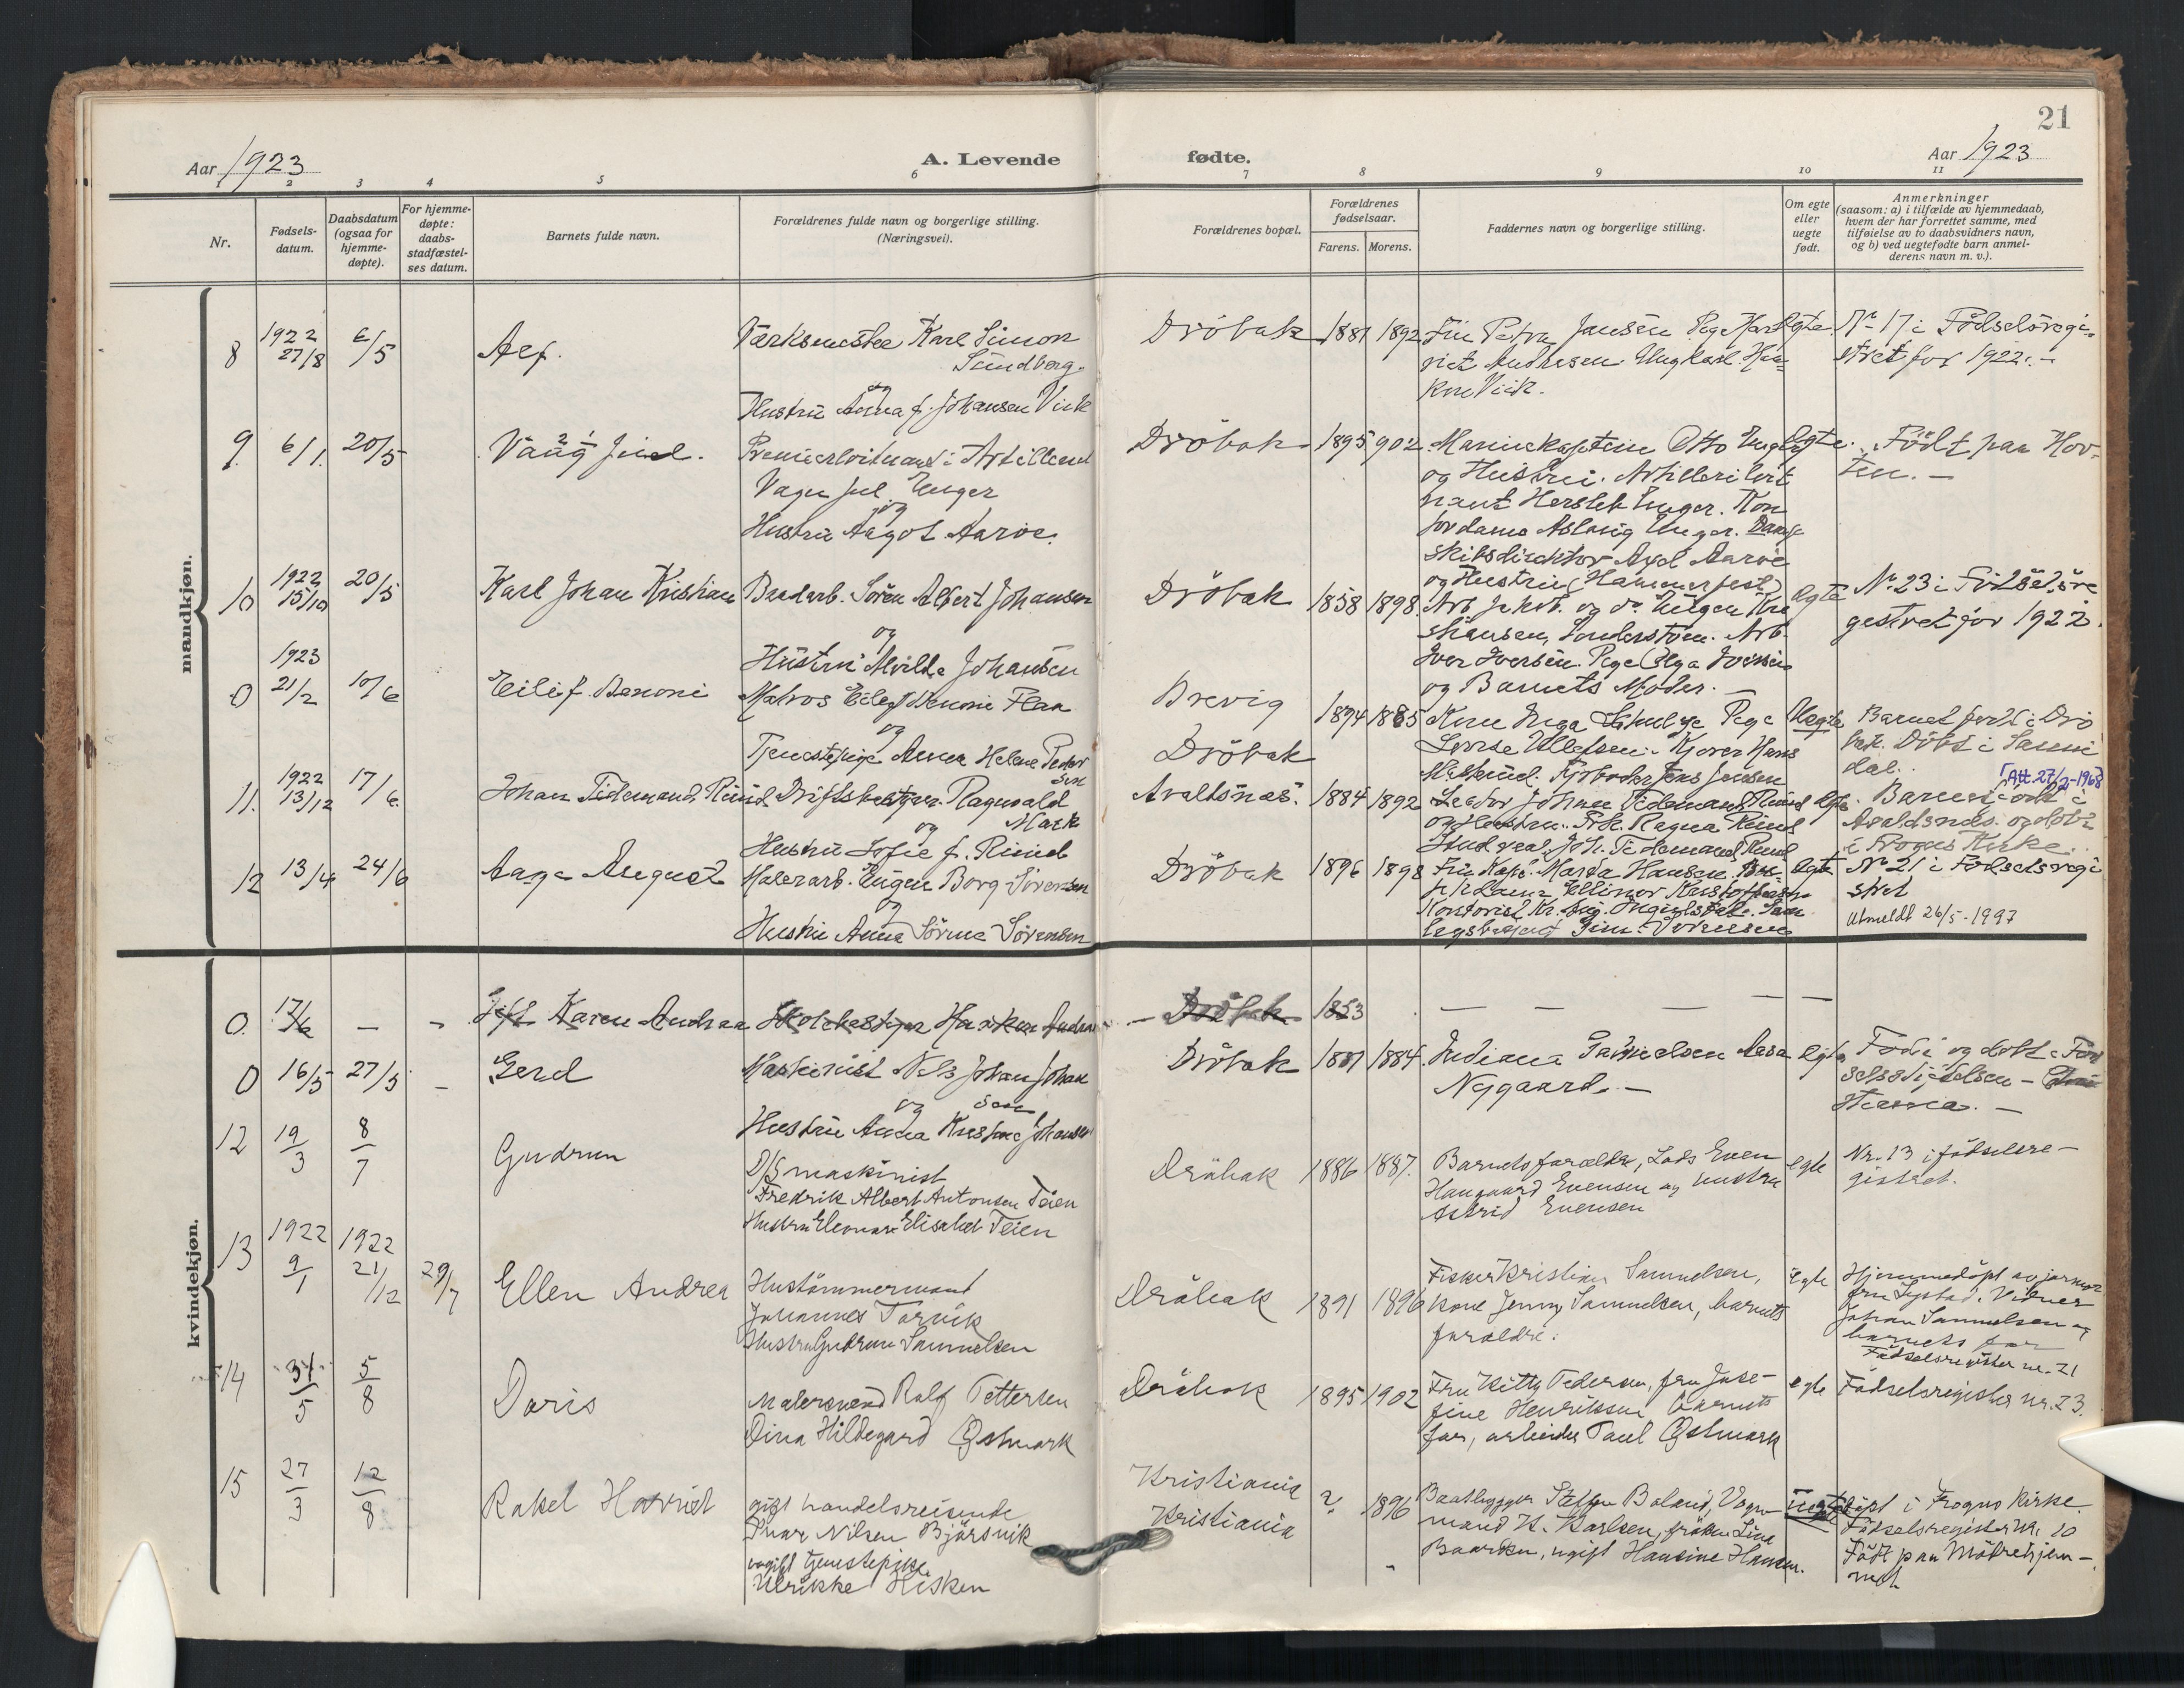 21
Aar 1923
A. Levende
fødte.
Aar 1923
1 2 3 4 5 6 7 8 9 10 11
Nr.
Fødsels-
datum.
Daabsdatum
(ogsaa for
hjemme-
døpte).
For hjemme-
døpte:
daabs-
stadfæstel-
ses datum.
Barnets fulde navn.
Forældrenes fulde navn og borgerlige stilling.
(Næringsvei).
Forældrenes bopæl.
Forældrenes
fødselsaar.
Farens. Morens.
Faddernes navn og borgerlige stilling.
Om egte
eller
uegte
født.
Anmerkninger
(saasom: a) i tilfælde av hjemmedaab,
hvem der har forrettet samme, med
tilføielse av to daabsvidners navn,
og b) ved uegtefødte barn anmel-
derens navn m. v.).
mandkjøn.
8
1922
27/8
6/5
Alf.
Værksmester Karl Simon
Sundberg.
og
Hustru Anna f. Johansen Viik
Dröbak
1881 1892
Fru Petra Jansen Pige Har
riet Andresen. Ungkarl Haa-
kon Viik.
Egte
No 17 i Födselsregi-
stret for 1922.-
9.
6/1.
20/5
Vaag Juel.
Premierløitnant i Artilleriet
Vagn Juel Unger
og
Hustru Aagot Aarøe.
Dröbak
1895 902
Marinekaptein Otto Unger
og Hustru. Artilleriløit
nant Hersleb Unger. Kon
tordame Aslaug Unger. Damp
skibsdirektør Axel Aarøe
og Hustru (Hammerfest)
Egte.
Födt paa Hor-
ten.-
10
1922
15/10
20/5
Karl Johan Kristian
Baadarb. Sören Albert Johansen
og
Hustru Alvilde Johansen
Dröbak
1858 1898.
Arb. Jakob. og do Eugen Kri
stiansen, Sonderstøm. Arb.
Iver Iversen. Pige Olga Iversen
og Barnets Moder.-
Egte
No 23 i Födselsre
gistret for 1922.
0
1923
21/2
10/6
Eilif Benoni
Matros Eilef Benoni Flaa
og
Tjenestepige Anna Helene Peder
sen
Brevig
Dröbak
1894 1885
Kone Inga Pige
Lovise Ullefsen. Kjører Hans
Jens Jensen
Uegte
Barnet født i Drö
bak. Döbt i Sanni
dal.
11.
1922
13/12
17/6
Johan Tidemand Ruud
Driftsbestyrer Ragnvald
Mark
og
Hustru Sofie f. Ruud
Avaldsnæs.
1884 1892
Lektor Johan Tidemand Ruud
og Hustru. Frk. Ragna Ruud
Stud. real. Joh. Tidemand Ruud
Egte.
Att. 27/2-1968
Barnet født i
Avaldsnæs. og döbt
i Frogns Kirke.
12
13/4
24/6
Aage August
Malerarb. Eugen Borg Sörensen
og
Hustru Anna Sörine Sörensen
Dröbak
1896 1898
Fru Kapt. Marta Hansen.
Ellinor Kristoffersen
Kontorist Kr. Aug. Ingulstad.
Sörensen
Egte
No 21 i Fødselsregi
stret
Utmeldt 26/5-1997
kvindekjøn.
0.
17/6
-
-
Gift Karen Andrea
Skolebestyrer Haakon
Dröbak
1853
- - - - -
0
16/5
27/5
-
Gerd
Maskinist Nils Johan Johan
sen
og
Hustru Anna Kristine Johansen
Dröbak
1881 1884.
Indiana Danielsen Aasa
Nygaard.-
Egte
Född og döbt i Föd
selsstiftelsen -
12
19/3
8/7
Gudrun
D/S maskinist
Fredrik Albert Antonsen Teien
Hustru Eleonore Elisabet Teien
Dröbak
1886 1887.
Barnets forældre, Lods Even
Haugaard Evensen og hustru
Astrid Evensen
egte
Nr. 13 i födselsre-
gistret.
13
1922
9/1
1922
21/12
29/7
Ellen Andrea
Hustömmermand
Johannes Torvik
Hustru Gudrun Samuelsen
Dröbak
1891 1896
Fisker Kristian Samuelsen,
kone Jenny Samuelsen, barnets
foreldre.
egte
Hjemmedöpt av jormor
fru Systad. Vidner
Johan Samuelsen og
barnets far
Fødselsregister nr. 21
14
31/5
5/8
Doris
Malersvend Rolf Pettersen
Dina Hildegard Østmark
Dröbak
1895 1902
Fru Kitty Pedersen, fru Jose-
fine Henriksen, barnets
far, arbeider Paul Østmark
egte
Fødselsregister nr. 23.
15
27/3
12/8
Rakel Harriet
gift handelsreisende
Einar Nilsen Bjørsvik
ugift tjenestepike
Ulrikke Hisken
Kristiania
Kristiania
? 1896
Baatbygger Steffen Boland, Vogn-
mand K. Karlsen, frøken Lina
Baarsen, ugift Hansine Hansen.
uegte
Døpt i Frogns Kirke.
Fødselsregister Nr. 20
Født paa Mødrehjem-
met.